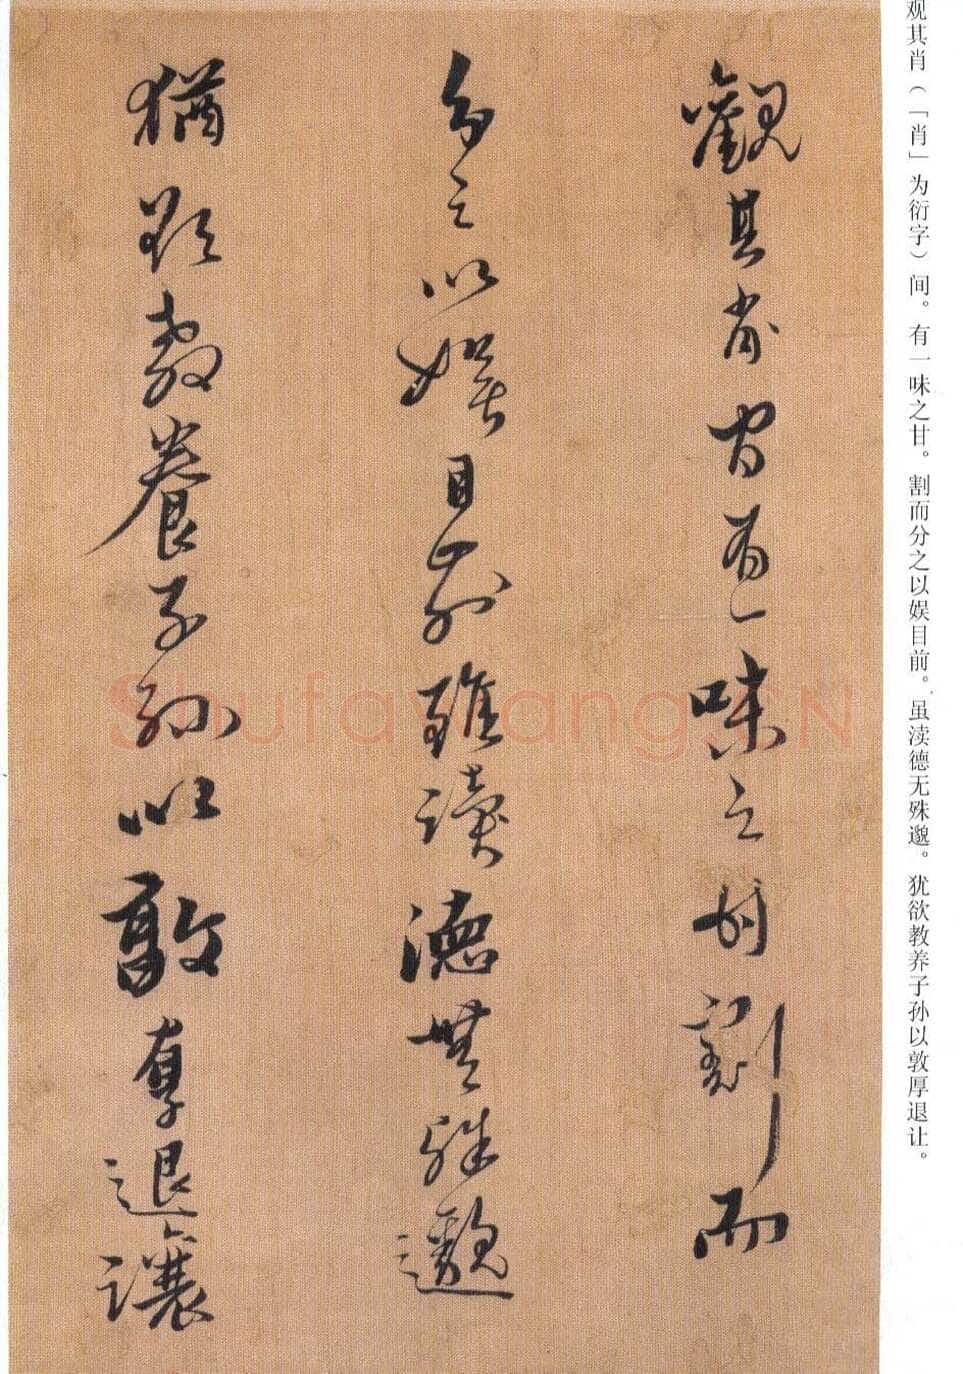 观其肖（「肖」为衍字）间。有一味之甘。割而分之以娱目前。虽渎德无殊邈。犹欲教养子孙以敦厚退让。
觀其肖間有一味之甘割而
分之以娛目前雖讀德無殊邈
猶欲教養子孫以敦厚退讓
Shufawang.CN